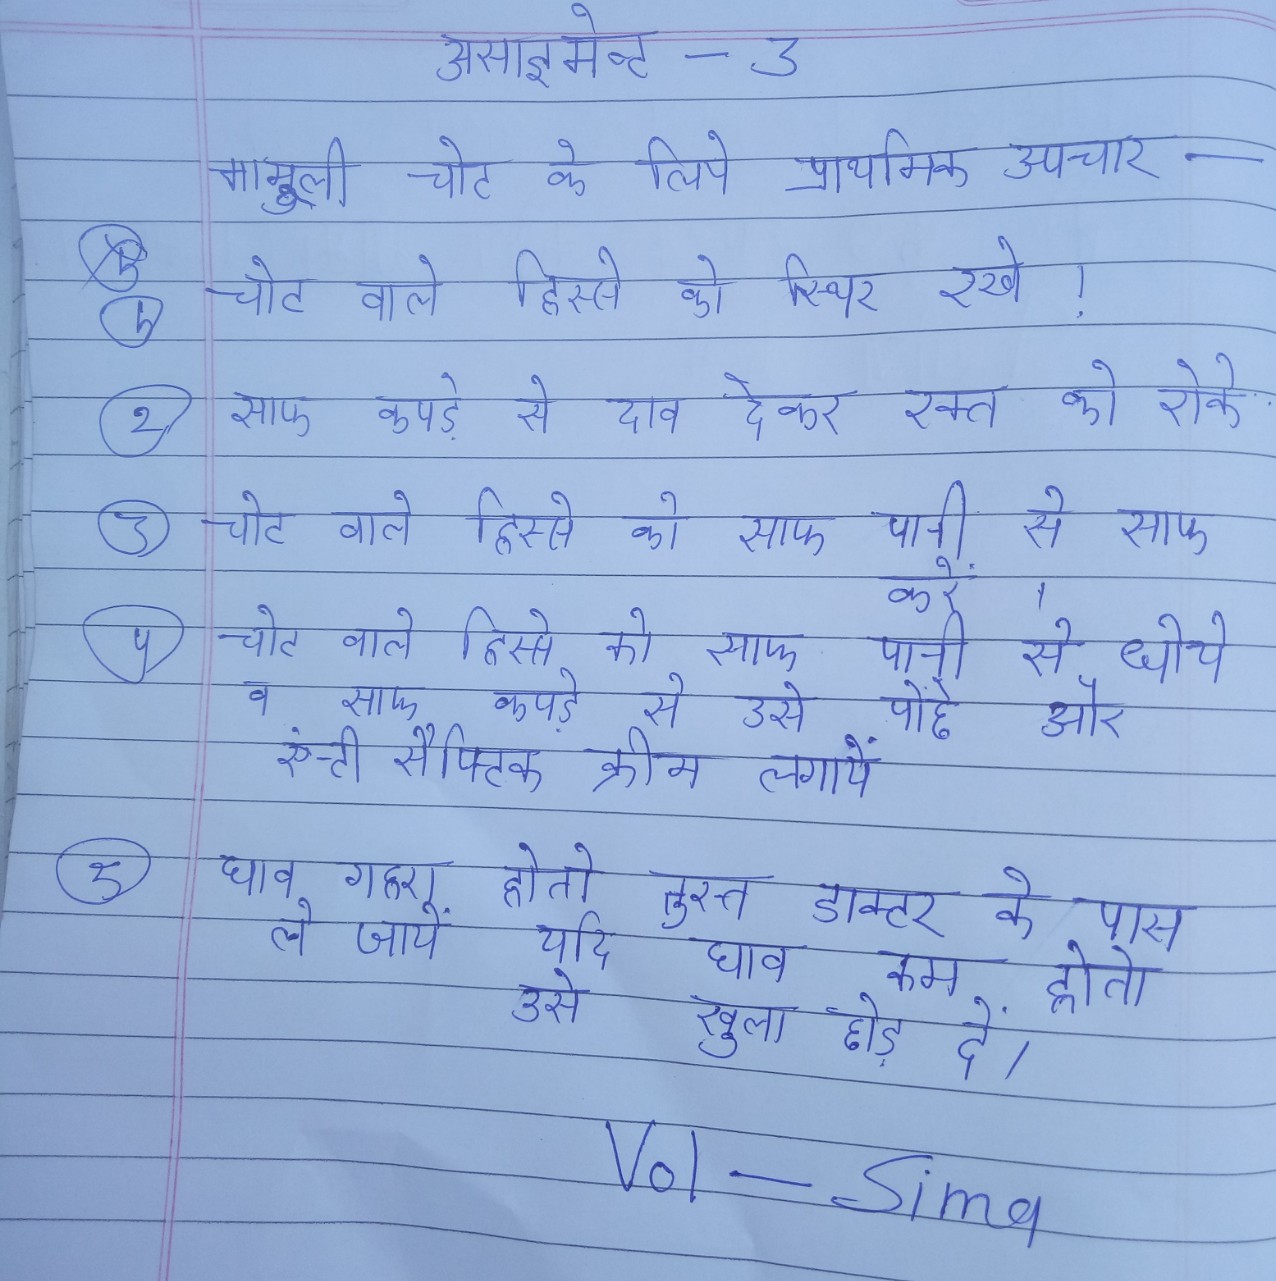 असाइमेन्ट - 3
मामुली चोट के लिये प्राथमिक उपचार -
चोट वाले हिस्से को स्थिर रखे !
② साफ कपड़े से दाव देकर रक्त को रोके
③ चोट वाले हिस्से को साफ पानी से साफ
करें ।
४ चोट वाले हिस्से को साफ पानी से धोये
व साफ कपड़े से उसे पोंछे और
एंन्टी सैप्टिक क्रीम लगायें
५ घाव गहरा होतो तुरन्त डाक्टर के पास
ले जायें यदि घाव कम होतो
उसे खुला छोड़ दें।
Vol - Sima